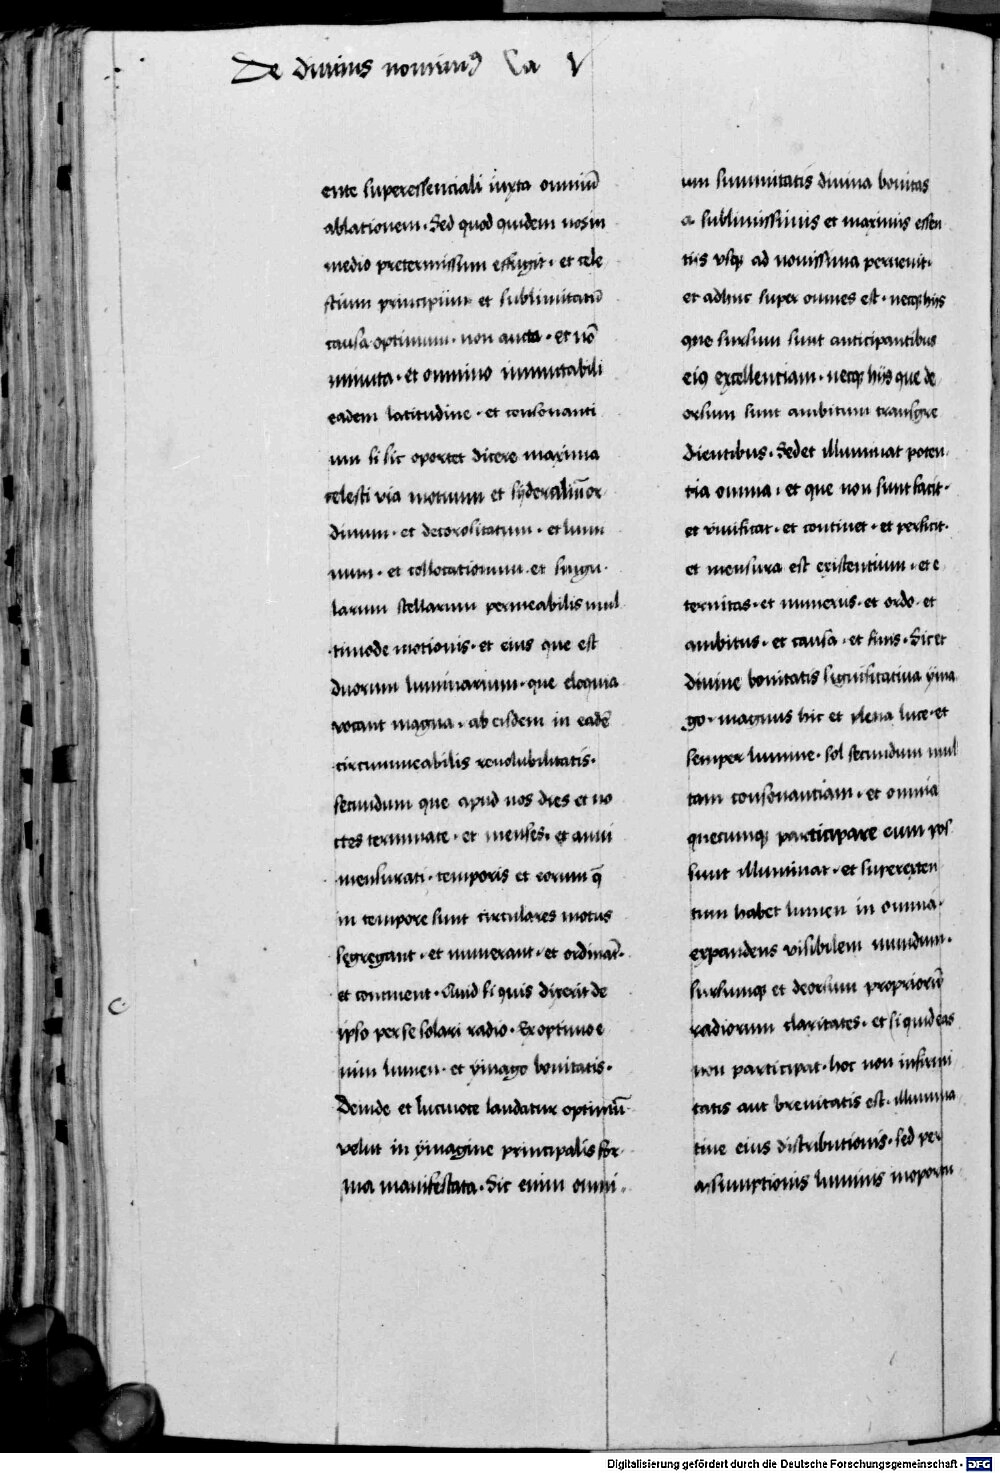 De diuinis nominibꝯ Ca V
ente superessenciali iuxta omniū
ablationem. Sed quod quidem nos in
medio pretermissum effugit. et cele
stium principium et sublimitatū
causa optimum. non aucta. et nō
minuta. et omnino immutabili
eadem latitudine. et consonanti
um si sic oportet dicere maxima
celesti via motuum et syderaliū or
dinum. et decorositatum. et lumi
num. et collocationum. et singu
larum stellarum permeabilis mul
timode motionis. et eius que est
duorum luminarium. que eloquia
vocant magna. ab eisdem in eadē
circummeabilis reuolubilitatis.
secundum que apud nos dies et no
ctes terminate. et menses. et anni
mensurati. temporis et eorum q̄
in tempore sunt circulares motus
segregant. et numerant. et ordināt.
et continent. Quid si quis dixerit de
ipso per se solari radio. Ex optimo e
nim lumen. et ymago bonitatis.
Deinde et lucinote laudatur optimū
velut in ymagine principalis for
ma manifestata. Sic enim omni
um summitatis diuina bonitas
a sublimissimis et maximis essen
tiis vsqꝫ ad nouissima peruenit.
et adhuc super omnes est. necqꝫ hiis
que sursum sunt anticipantibus
eiꝯ excellentiam. necqꝫ hiis que de
orsum sunt ambitum transgre
dientibus. Sed et illuminat poten
tia omnia. et que non sunt facit.
et viuificat. et continet. et perficit.
et mensura est existentium. et e
ternitas. et numerus. et ordo. et
ambitus. et causa. et finis. Sic et
diuine bonitatis significatiua yma
go. magnus hic et plena luce. et
semper lumine. sol secundum mul
tam consonantiam. et omnia
quecumqꝫ participare eum pos
sunt illuminat. et superexten
tum habet lumen in omnia.
expandens visibilem mundum.
sursumqꝫ et deorsum propriorū
radiorum claritates. et si quid eas
non participat. hoc non infirmi
tatis aut breuitatis est. illumina
tiue eius distributionis. sed per
assumptionis luminis inoportu
Digitalisierung gefördert durch die Deutsche Forschungsgemeinschaft - DFG